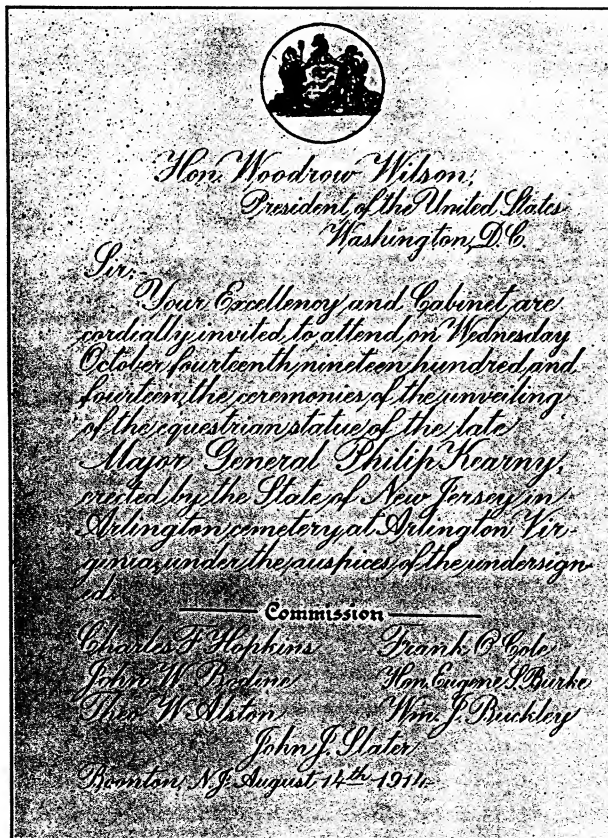 Hon. Woodrow Wilson,
President of the United States
Washington, D.C.
Sir:-
Your Excellency and Cabinet are
cordially invited to attend on Wednesday
October fourteenth nineteen hundred and
fourteen, the ceremonies of the unveiling
of the equestrian statue of the late
Major General Philip Kearny,
erected by the State of New Jersey in
Arlington cemetery at Arlington Vir-
ginia, under the auspices of the undersign-
ed.
Commission
Charles F. Hopkins Frank O. Cole
John W. Bodine Hon. Eugene S. Burke
Theo. W. Alston Wm. J. Buckley
John J. Slater
Boonton, N.J. August 14th 1914